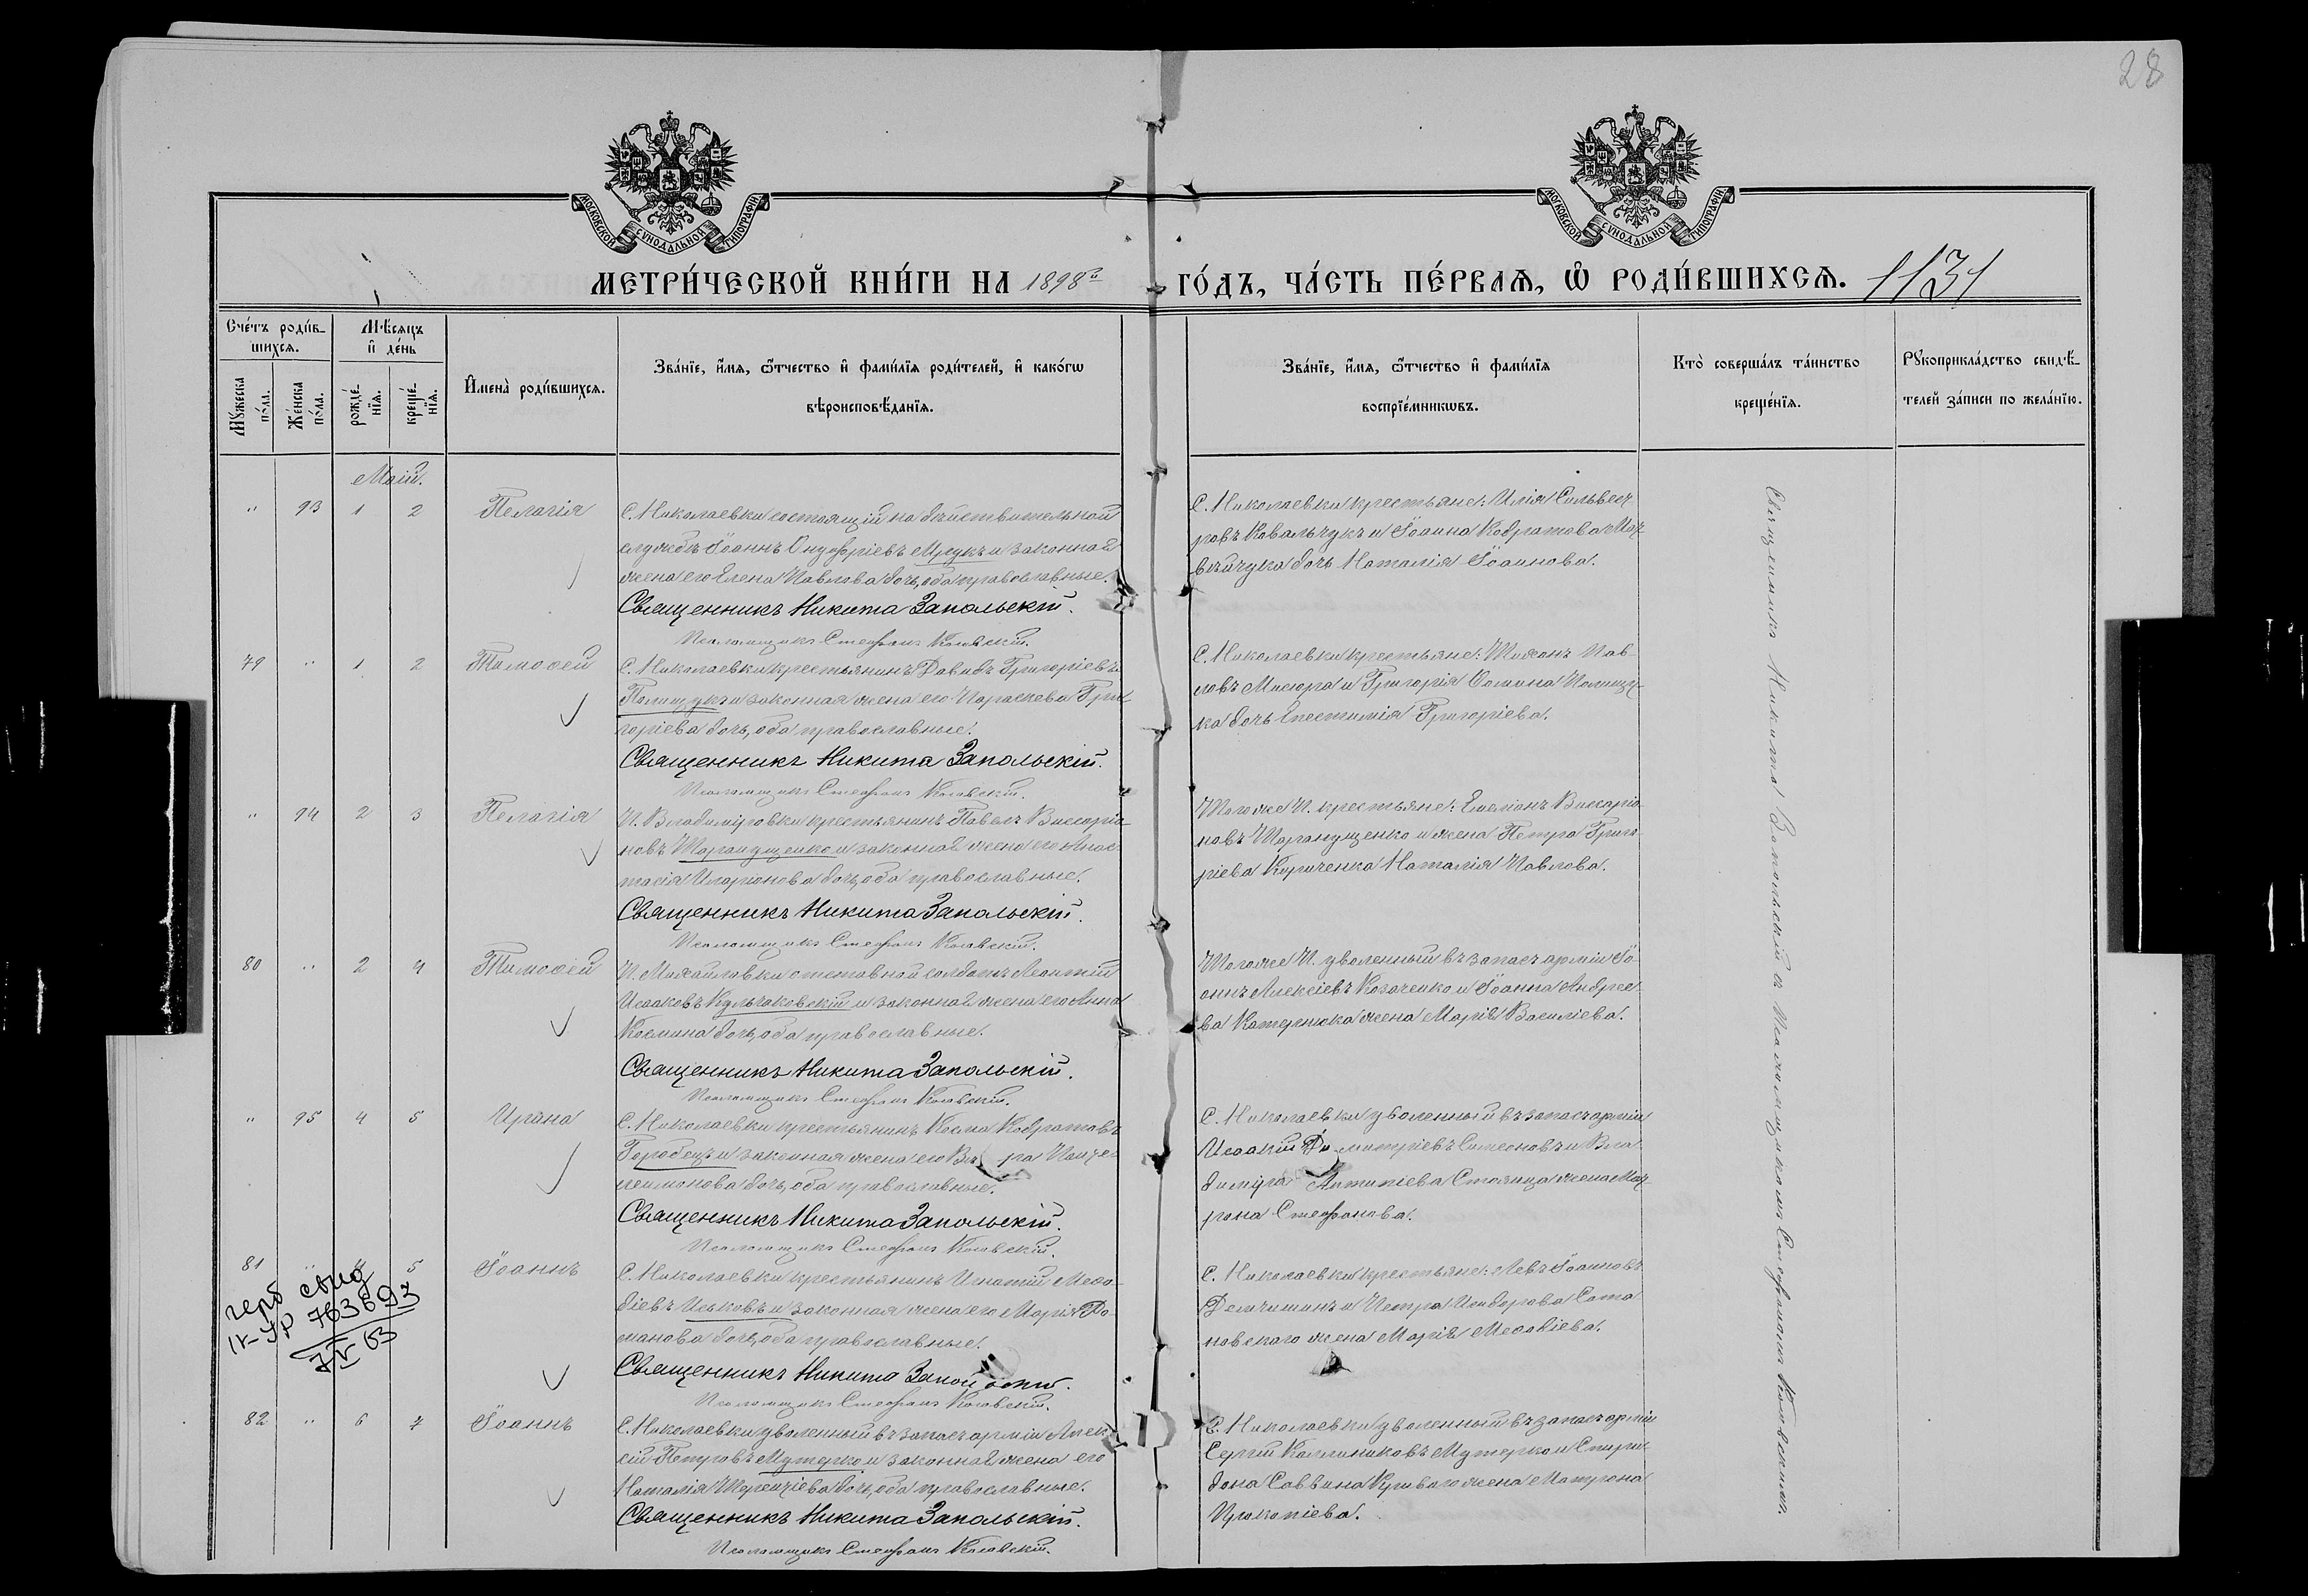 28
МОСКОВСКОЙ СѴНОДАЛЬНОЙ ТИПОГРАФІИ
МОСКОВСКОЙ СѴНОДАЛЬНОЙ ТИПОГРАФІИ
МЕТРИ́ЧЕСКОЙ КНИ́ГИ НА 1898й ГО́ДЪ, ЧА́СТЬ ПЕ́РВАЯ, Ѡ҆ РОДИ́ВШИХСЯ. 1131
Сче́тъ роди́в-
шихся.
Мѣ́сяцъ
и҆ де́нь
Мꙋ́жеска
по́ла.
Же́нска
по́ла.
рожде́-
нїя.
креще́-
нїя.
И҆мена̀ роди́вшихся.
Зва́нїе, и҆́мя, ѻ҆́тчество и҆ фами́лїя роди́телей, и҆ како́гѡ
вѣроисповѣ́данїя.
Зва́нїе, и҆́мя, ѻ҆́тчество и҆ фами́лїя
воспрїе́мникѡвъ.
Кто̀ соверша́лъ та́инство
креще́нїя.
Рꙋкоприкла́дство свидѣ́-
телей за́писи по жела́нїю.
Май.
" 93 1 2 Пелагія
С. Николаевки состоящій на дѣйствительной
службѣ Іоаннъ Онуфріевъ Мрукъ и законная
жена его Елена Павлова дочь, оба православные.
Священникъ Никита Запольскій.
Псаломщикъ Стефанъ Косовскій.
С. Николаевки крестьяне: Илія Сильвест-
ровъ Ковальчукъ и Іоанна Кодратова Мат-
вѣйчука дочь Наталія Іоаннова.
79 " 1 2 Тимоѳей
С. Николаевки крестьянинъ Давидъ Григоріевъ
Полищукъ и законная жена его Параскева Гри-
горіева дочь, оба православные.
Священникъ Никита Запольскій.
Псаломщикъ Стефанъ Косовскій.
С. Николаевки крестьяне: Тихонъ Пав-
ловъ Мисюра и Григорія Ѳомина Полищу-
ка дочь Епестимія Григоріева.
" 94 2 3 Пелагія
П. Владиміровки крестьянинъ Павелъ Виссаріо-
новъ Таранущенко и законная жена его Анас-
тасія Иларіонова дочь, оба православные.
Священникъ Никита Запольскій.
Псаломщикъ Стефанъ Косовскій.
Того же П. крестьяне: Емеліанъ Виссаріо-
новъ Таранущенко и жена Петра Григо-
ріева Кириченка Наталія Павлова.
80 " 2 4 Тимоѳей
П. Михайловки отставной солдатъ Леонтій
Исааковъ Кульчаковскій и законная жена его Анна
Косьмина дочь, оба православные.
Священникъ Никита Запольскій.
Псаломщикъ Стефанъ Косовскій.
Того же П. уволенный въ запасъ арміи Іо-
аннъ Алексіевъ Козаченко и Іоанна Андрее-
ва Катеринюка жена Марія Василіева.
" 95 4 5 Ирина
С. Николаевки крестьянинъ Косма Кодратовъ
Горобецъ и законная жена его Вѣра Панте-
леимонова дочь, оба православные.
Священникъ Никита Запольскій.
Псаломщикъ Стефанъ Косовскій.
С. Николаевки уволенный въ запасъ арміи
Исаакій Димитріевъ Симеоновъ и Вла-
димира Антипіева Столица жена Мат-
рона Стефанова.
81 " 4 5 Іоаннъ
С. Николаевки крестьянинъ Игнатій Меѳо-
діевъ Иськовъ и законная жена его Марія Ро-
манова дочь, оба православные.
Священникъ Никита Запольскій.
Псаломщикъ Стефанъ Косовскій.
С. Николаевки крестьяне: Левъ Іоанновъ
и Петра Исидорова Сата-
новскаго жена Марія Меѳодіева.
герб свид
763693
82 " 6 7 Іоаннъ
С. Николаевки уволенный въ запасъ арміи Алек-
сій Петровъ Мутерко и законная жена его
Наталія Терентіева дочь, оба православные.
Священникъ Никита Запольскій.
Псаломщикъ Стефанъ Косовскій.
С. Николаевки уволенный въ запасъ арміи
Сергій Каллиниковъ Мутерко и Спири-
дона Саввина Криваго жена Матрона
Прокопіева.
Священникъ Никита Запольскій съ Псаломщикомъ Стефаномъ Косовскимъ.